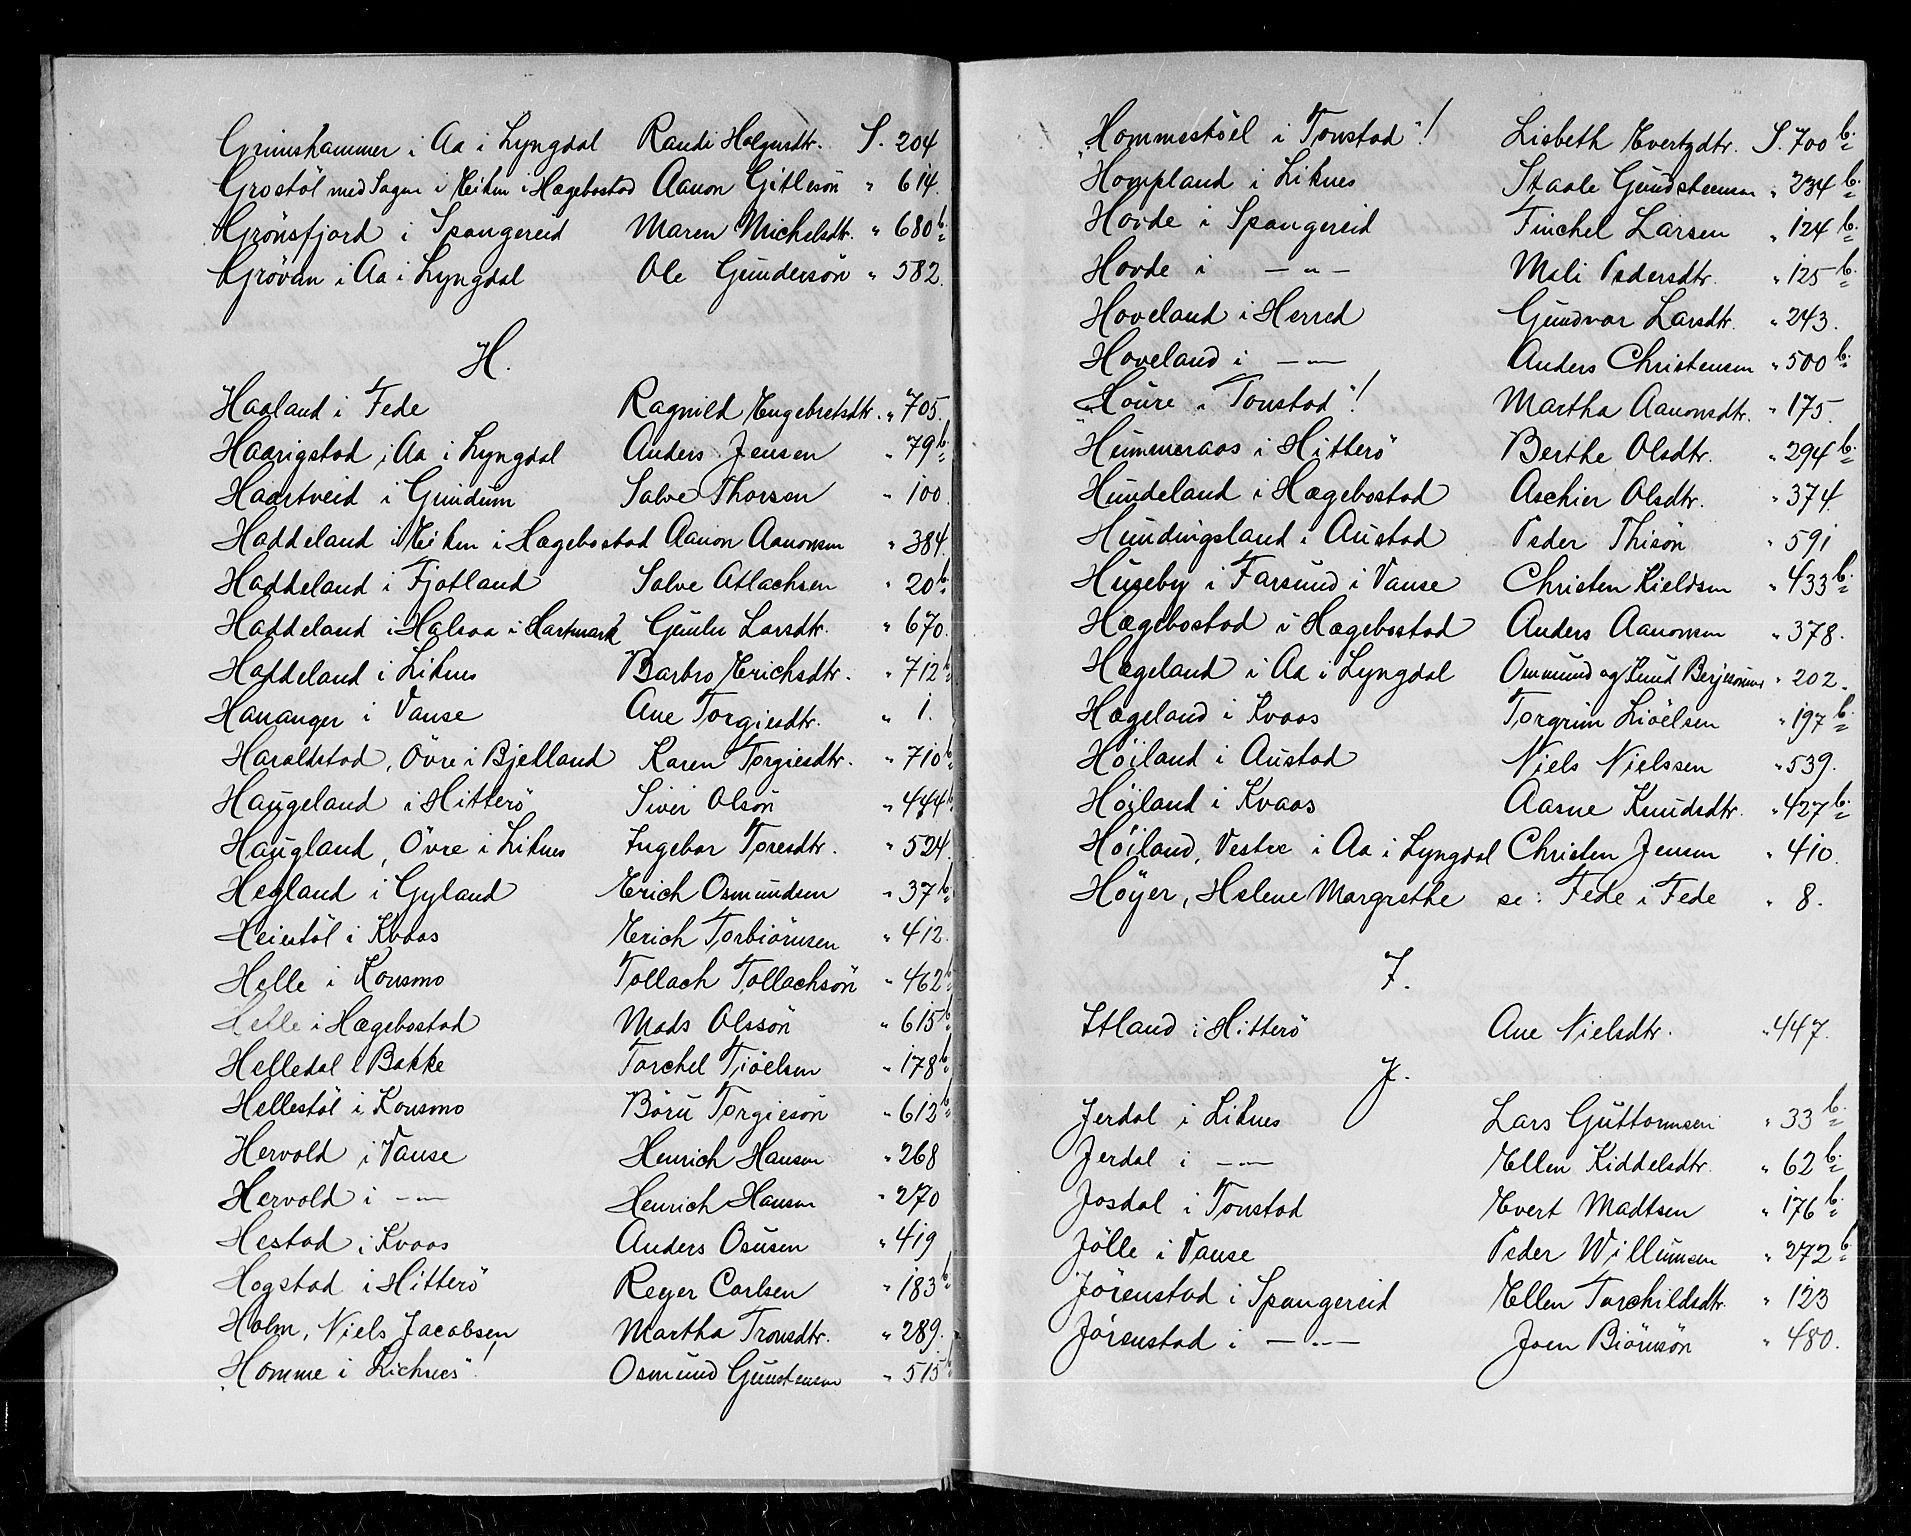 Grimshammer i Aa i Lyngdal Randi Holgersdtr. S. 204
Grostöl med Sagen i Eiken i Hægebostad Aanon Gitlesön " 614.
Grönsfjord i Spangereid Maren Michelsdtr. " 680 b.
Grövan i Aa i Lyngdal Ole Gundersön " 582.
H.
Haaland i Fede Ragnild Engebretsdtr. " 705.
Haarigstad i Aa i Lyngdal Anders Jensen " 79 b.
Haartveid i Grindum Salve Thorsen " 100.
Haddeland i Eiken i Hægebostad Aanon Aanonsen " 384.
Haddeland i Fjotland Salve Atlachsen " 20 b.
Haddeland i Halsaa i Hartmark Gunler Larsdtr. " 670.
Haddeland i Liknes Barbro Erichsdtr. " 712 b
Hananger i Vanse Ane Torgiesdtr. " 1.
Haraldstad, Övre i Bjelland Karen Torgiesdtr. " 710 b.
Haugeland i Hitterö Siver Olsön " 444 b
Haugland, Övre i Liknes Ingebor Toresdtr. " 524.
Hegland i Gyland Erich Osmundsen " 37 b.
Heiestöl i Kvaas Erich Torbiörnsen " 412.
Helle i Konsmo Tollach Tollachsön " 462 b
Helle i Hægebostad Mads Olssön " 615 b
Helledal i Bakke Torchel Tiöelsen " 178 b.
Hellestöl i Konsmo Böru Torgiesön " 612 b
Hervold i Vanse Henrich Hansen " 268
Hervold i — " — Henrich Hansen " 270
Hestad i Kvaas Anders Osusen " 419
Hogstad i Hitterö Reyer Carlsen " 183 b.
Holm, Niels Jacobsen Martha Tronsdtr. " 289.
"Homme i Lichnes"! Osmund Gunstensen " 515 b
"Hommestöel i Tonstad"! Lisbeth Evertzdtr. S. 700 b.
Hompland i Liknes Staale Gundstensen " 234 b.
Hovde i Spangereid Tinchel Larsen " 124 b.
Hovde i — " — Mali Pedersdtr. " 125 b.
Hoveland i Herred Gundvor Larsdtr. " 243.
Hoveland i — " — Anders Christensen " 500 b.
"Houre i Tonstad"! Martha Aanonsdtr. " 175.
Hummeraas i Hitterö Berthe Olsdtr. " 294 b.
Hundeland i Hægebostad Aschier Olsdtr. " 374.
Hundingsland i Austad Peder Thisön " 591
Huseby i Farsund i Vanse Christen Kieldsen " 433 b.
Hægebostad i Hægebostad Anders Aanonsen " 378.
Hægeland i Aa i Lyngdal Ommund og Knud Berjesönner " 202.
Hægeland i Kvaas Torgrim Liöelsen " 197 b.
Höiland i Austad Niels Nielssen " 539.
Höiland i Kvaas Aasne Knudsdtr. " 427 b.
Höiland, Vestre i Aa i Lyngdal Christen Jensen " 410.
Höyer, Helene Margrethe se: Fede i Fede " 8.
I.
Itland i Hitterö Ane Nielsdtr. " 447.
J.
Jerdal i Liknes Lars Guttormsen " 33 b.
Jerdal i — " — Ellen Kiddelsdtr. " 62 b.
Josdal i Tonstad Evert Madtsen " 176 b.
Jölle i Vanse Peder Willumsen " 272 b
Jörenstad i Spangereid Ellen Torchildsdtr. " 123
Jörenstad i — " — Joen Biörnsön " 480.